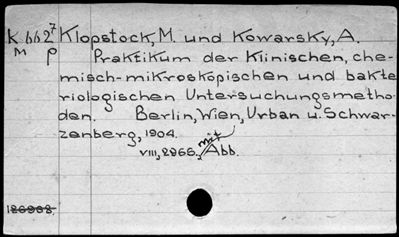 K 662⁷ Klopstock, M. und Kowarsky, A.
M p Praktikum der Klinischen, che-
misch-mikroskopischen und bakte
riologischen Untersuchungsmetho-
den. Berlin, Wien, Urban u. Schwar-
zenberg, 1904.
VIII, 296S., mit Abb.
126968.